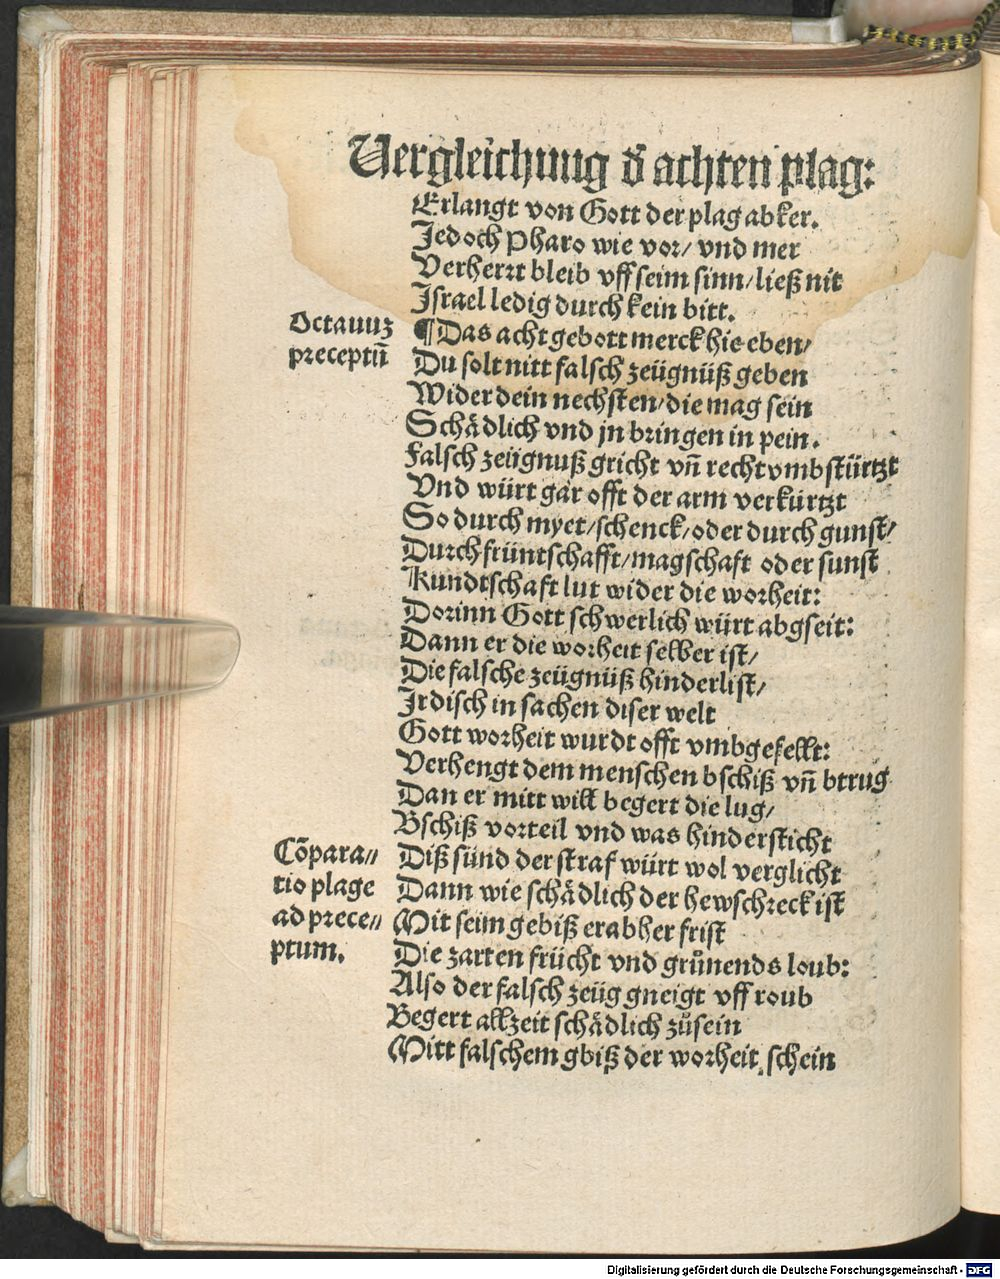 Vergleichung đ achten plag:
Erlangt von Gott der plag abker.
Jedoch Pharo wie vor/ vnd mer
Verherrt bleib vff seim sinn/ ließ nit
Israel ledig durch kein bitt.
Octauuz
preceptū
¶Das acht gebott merck hie eben/
Du solt nitt falsch zeügnüß geben
Wider dein nechsten/ die mag sein
Schådlich vnd jn bringen in pein.
Falsch zeügnuß gricht vn̄ recht vmbstürtzt
Vnd würt gar offt der arm verkürtzt
So durch myet/ schenck/ oder durch gunst/
Durch früntschafft/ magschaft oder sunst
Kundtschaft lut wider die worheit:
Dorinn Gott schwerlich würt abgseit:
Dann er die worheit selber ist/
Die falsche zeügnüß hinderlist/
Irdisch in sachen diser welt
Gott worheit wurdt offt vmbgefellt:
Verhengt dem menschen bschiß vn̄ btrug
Dan er mitt will begert die lug/
Bschiß vorteil vnd was hindersticht
Cōpara//
tio plage
ad prece//
ptum.
Diß sünd der straf würt wol verglicht
Dann wie schådlich der hewschreck ist
Mit seim gebiß er abher frist
Die zarten frücht vnd grůnends loub:
Also der falsch zeüg gneigt vff roub
Begert allzeit schådlich zůsein
Mitt falschem gbiß der worheit schein
Digitalisierung gefördert durch die Deutsche Forschungsgemeinschaft - DFG